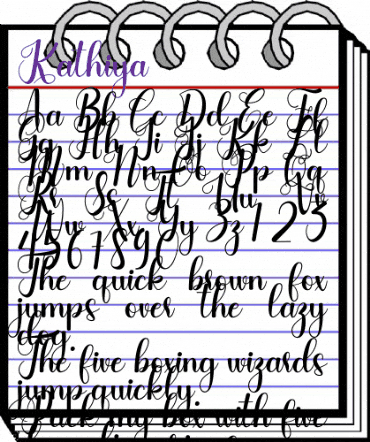 Kathiya
Aa Bb Cc Dd Ee Ff
Gg Hh Ii Jj Kk Ll
Mm Nn Oo Pp Qq
Rr Ss Tt Uu Vv
Ww Xx Yy Zz 1 2 3
4 5 6 7 8 9 0
The quick brown fox
jumps over the lazy
dog.
The five boxing wizards
jump quickly.
Pack my box with five